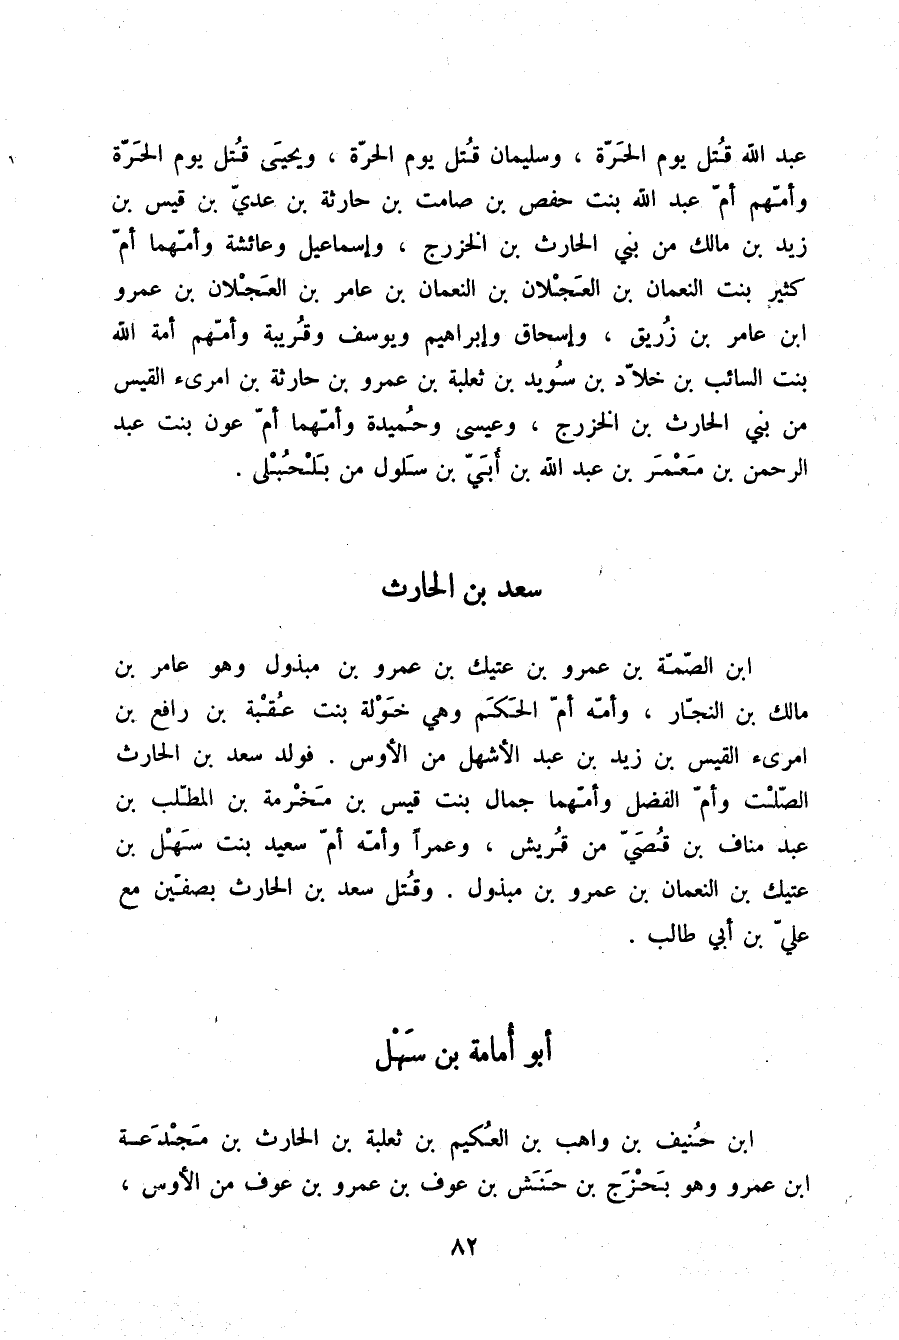 عبد الله قُتل يوم الحَرّة ، وسليمان قُتل يوم الحرّة ، ويحيَى قُتل يوم الحَرّة
وأمّهم أمّ عبد الله بنت حفص بن صامت بن حارثة بن عديّ بن قيس بن
زيد بن مالك من بني الحارث بن الخزرج ، وإسماعيل وعائشة وأمّهما أمّ
كثير بنت النعمان بن العَجْلان بن النعمان بن عامر بن العَجْلان بن عمرو
ابن عامر بن زُريق ، وإسحاق وإبراهيم ويوسف وقُريبة وأمّهم أمة الله
بنت السائب بن خلاّد بن سُويد بن ثعلبة بن عمرو بن حارثة بن امرىء القيس
من بني الحارث بن الخزرج ، وعيسى وحُميدة وأمّهما أمّ عون بنت عبد
الرحمن بن مَعْمَر بن عبد الله بن أُبَيّ بن سَلول من بَلْحُبْلى .
سعد بن الحارث
ابن الصّمّة بن عمرو بن عتيك بن عمرو بن مبذول وهو عامر بن
مالك بن النجّار ، وأمّه أمّ الحَكَم وهي خَوْلة بنت عُقْبة بن رافع بن
امرىء القيس بن زيد بن عبد الأشهل من الأوس . فولد سعد بن الحارث
الصّلْت وأمّ الفضل وأمّهما جمال بنت قيس بن مَخْرمة بن المطّلب بن
عبد مناف بن قُصَيّ من قُريش ، وعمراً وأمّه أمّ سعيد بنت سَهْل بن
عتيك بن النعمان بن عمرو بن مبذول . وقُتل سعد بن الحارث بصفّين مع
عليّ بن أبي طالب .
أبو أُمامة بن سَهْل
ابن حُنيف بن واهب بن العُكيم بن ثعلبة بن الحارث بن مَجْدَعة
ابن عمرو وهو بَحْزَج بن حَنَش بن عوف بن عمرو بن عوف من الأوس ،
٨٢